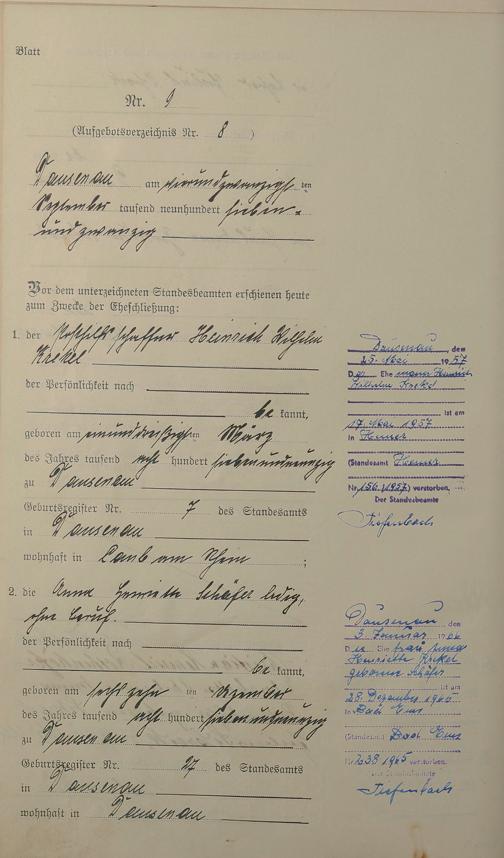 Blatt
Nr. 9
(Aufgebotsverzeichnis Nr. 8 )
Dausenau am vierundzwanzigsten
September tausend neunhundert sieben-
undzwanzig
Vor dem unterzeichneten Standesbeamten erschienen heute
zum Zwecke der Eheschließung:
1. der Heinrich Wilhelm
Krekel
der Persönlichkeit nach
be kannt,
geboren am einunddreißigsten März
des Jahres tausend acht hundert siebenundneunzig
zu Dausenau
Geburtsregister Nr. 7 des Standesamts
in Dausenau
wohnhaft in Caub am Rhein ;
2. die Anna Henriette Schäfer ledig,
ohne Beruf.
der Persönlichkeit nach
be kannt,
geboren am sechszehn ten Dezember
des Jahres tausend acht hundert siebenundneunzig
zu Dausenau
Geburtsregister Nr. 27 des Standesamts
in Dausenau
wohnhaft in Dausenau
Dausenau, den
25. Mai 1957
Der Ehemann Heinrich
Wilhelm Krekel
ist am
17. Mai 1957
in Hemer
(Standesamt Hemer
Nr. 156/1957) verstorben.
Der Standesbeamte
Tiefenbach
Dausenau, den
3. Januar 1966
Die Ehefrau Anna
Henriette Krekel
geborene Schäfer
ist am
28. Dezember 1965
in Bad Ems
(Standesamt Bad Ems
Nr. 238/1965 verstorben.
Der Standesbeamte
Tiefenbach